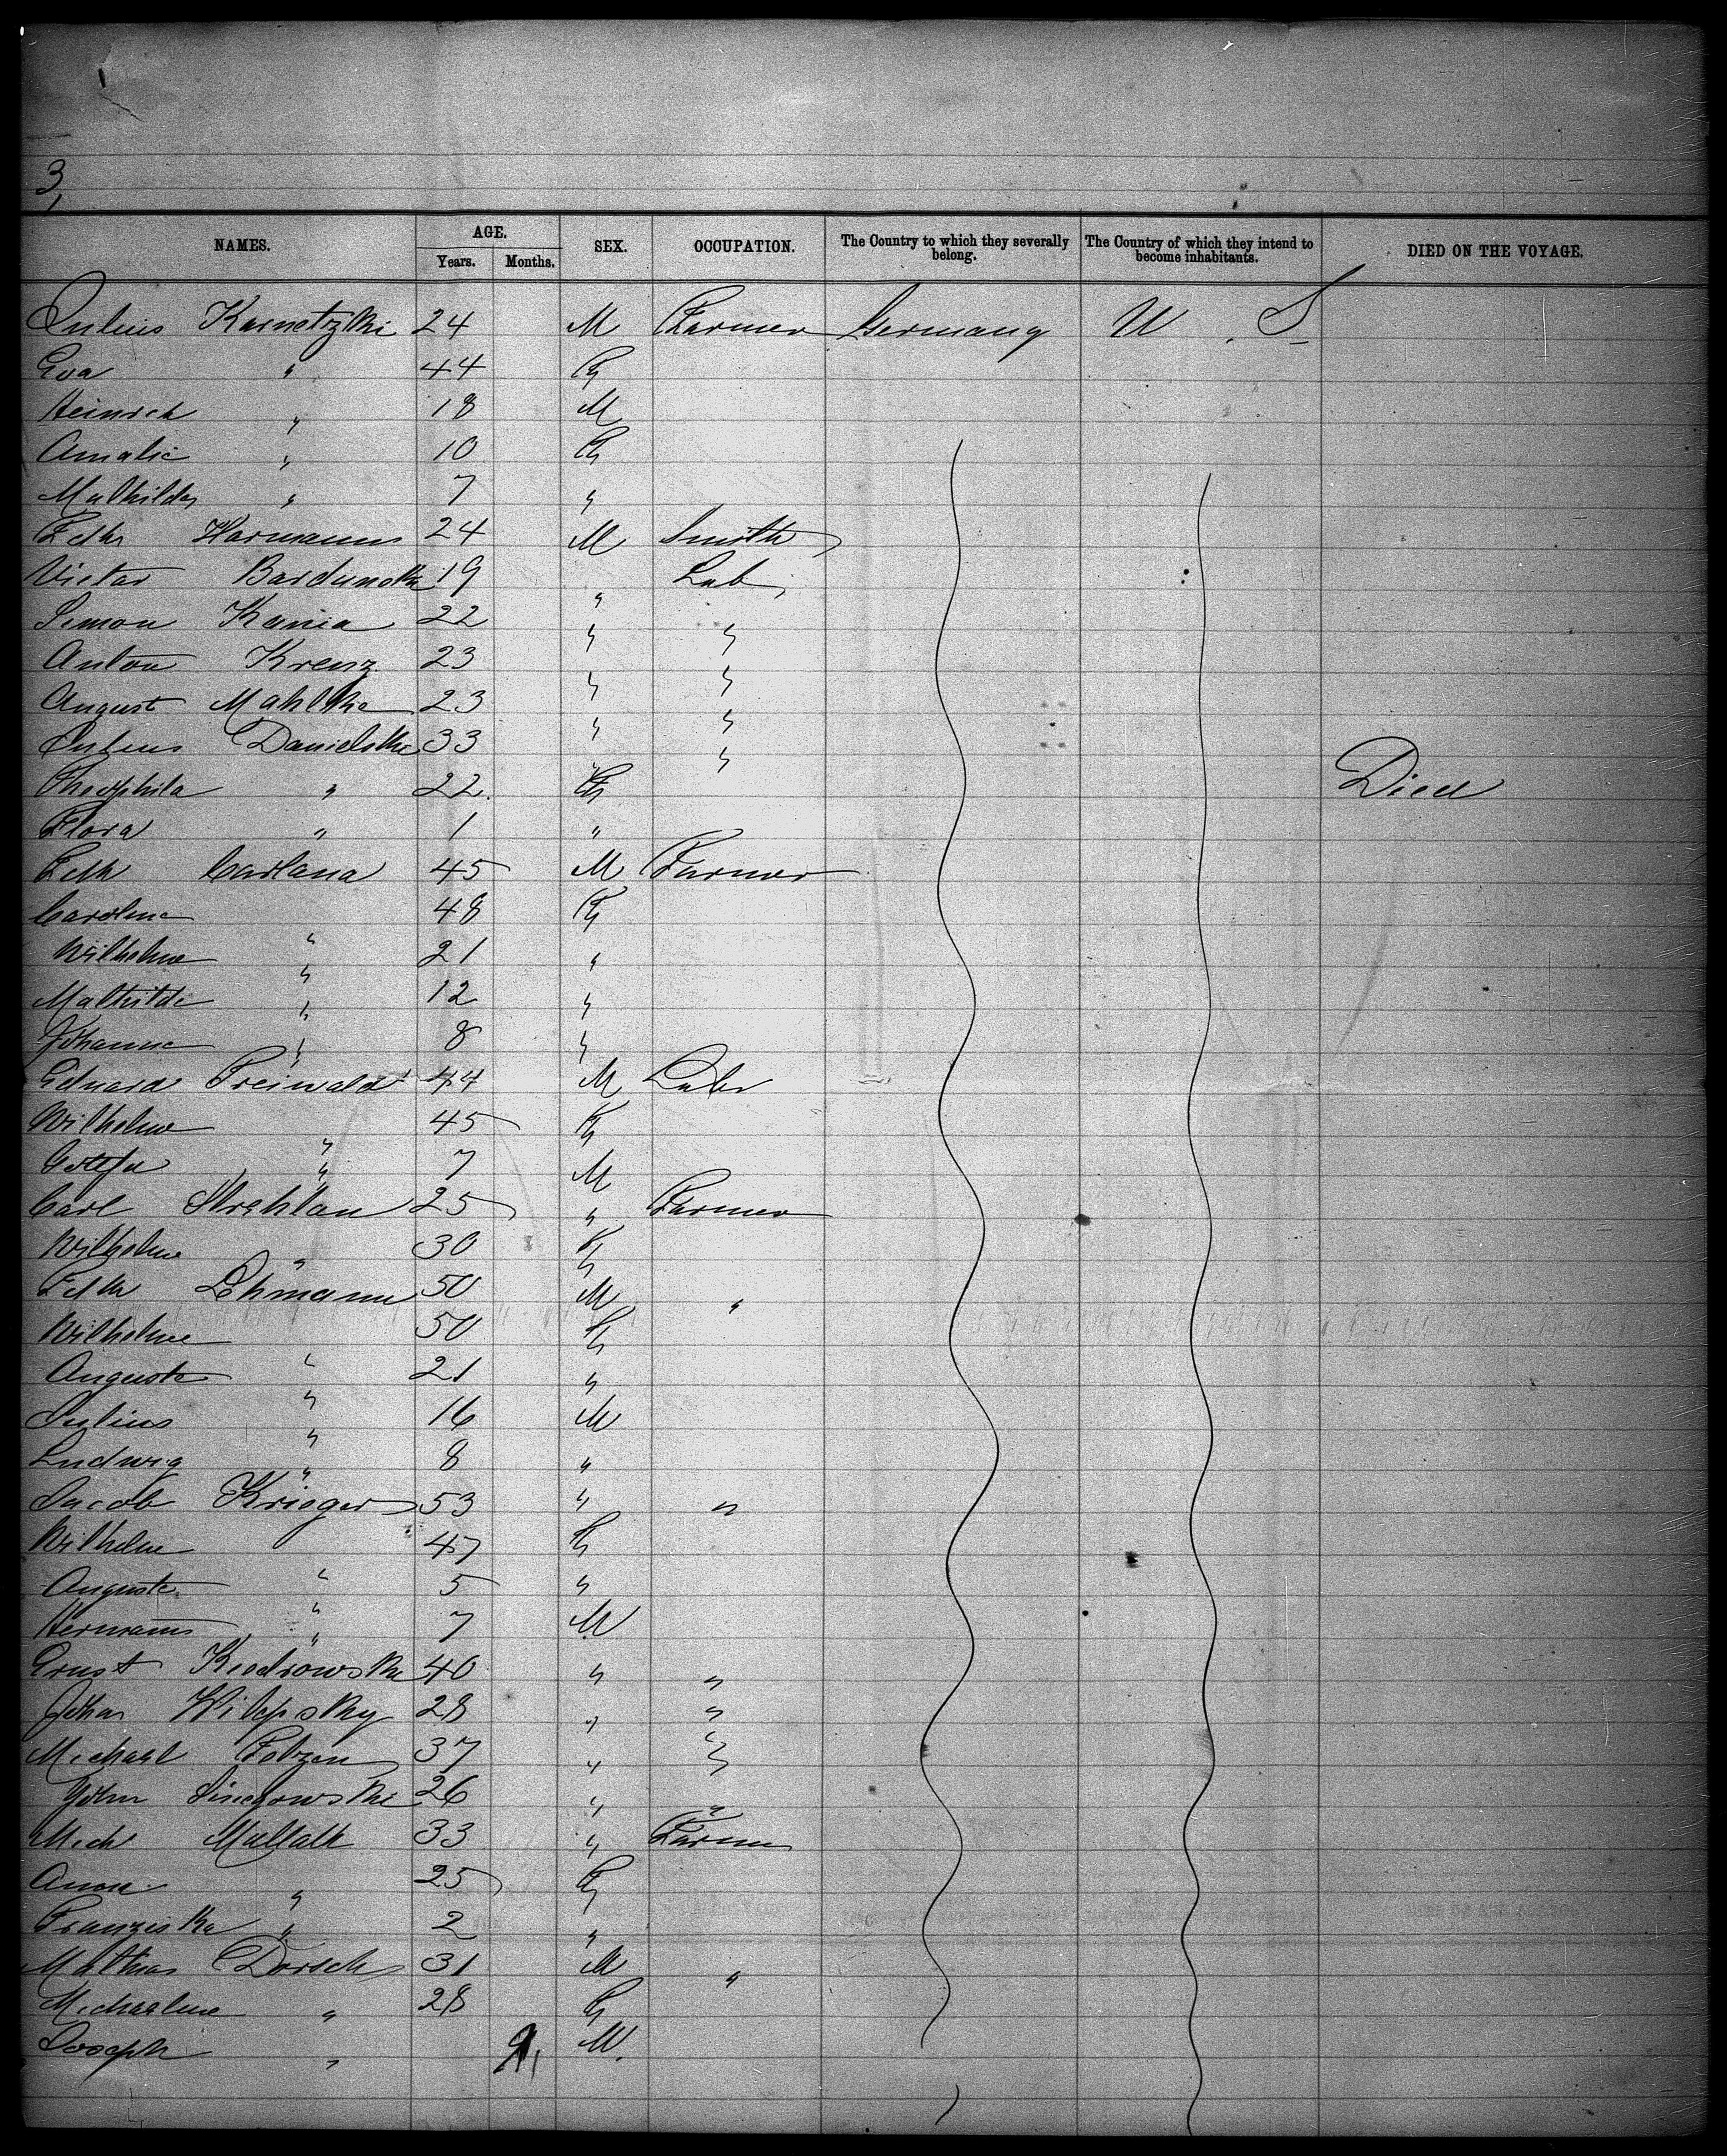 3,
NAMES. AGE. SEX. OCCUPATION. The Country to which they severally belong. The Country of which they intend to become inhabitants. DIED ON THE VOYAGE.
Years. Months.
Julius Karnetzki 24 M Farmer Germany U. S.
Eva " 44 F
Heinrch " 18 M
Amalie " 10 F
Mathilde " 7 "
Harmann 24 M Smith
Victor 19 " Lab,
Simon Kania 22 " "
Anton Krenz 23 " "
August Mahlke 23 " "
Julius Danielski 33 " "
Theophila " 22 F Died
Flora " 1 "
45 M Farmer
Caroline 48 F
Wilhelme " 21 "
Mathilde " 12 "
Johanne " 8 "
Eduard Preiwald 44 M Labr
Wilhelme " 45 F
" 7 M
Carl Strehlau 25 " Farmer
Wilhelme " 30 F
Lehmann 50 M "
Wilhelme 50 F
Auguste " 21 "
Julius " 16 M
Ludwig " 8 "
Jacob Krieger 53 " "
Wilhelme 47 F
Auguste " 5 "
Hermann " 7 M
Ernst 40 " "
Johan 28 " "
Michael 37 " "
John 26 " "
Mich 33 " Farmer
Anna " 25 F
Franziska " 2 "
Mathias Dorsch 31 M "
Michaelme " 28 F
Joseph " M